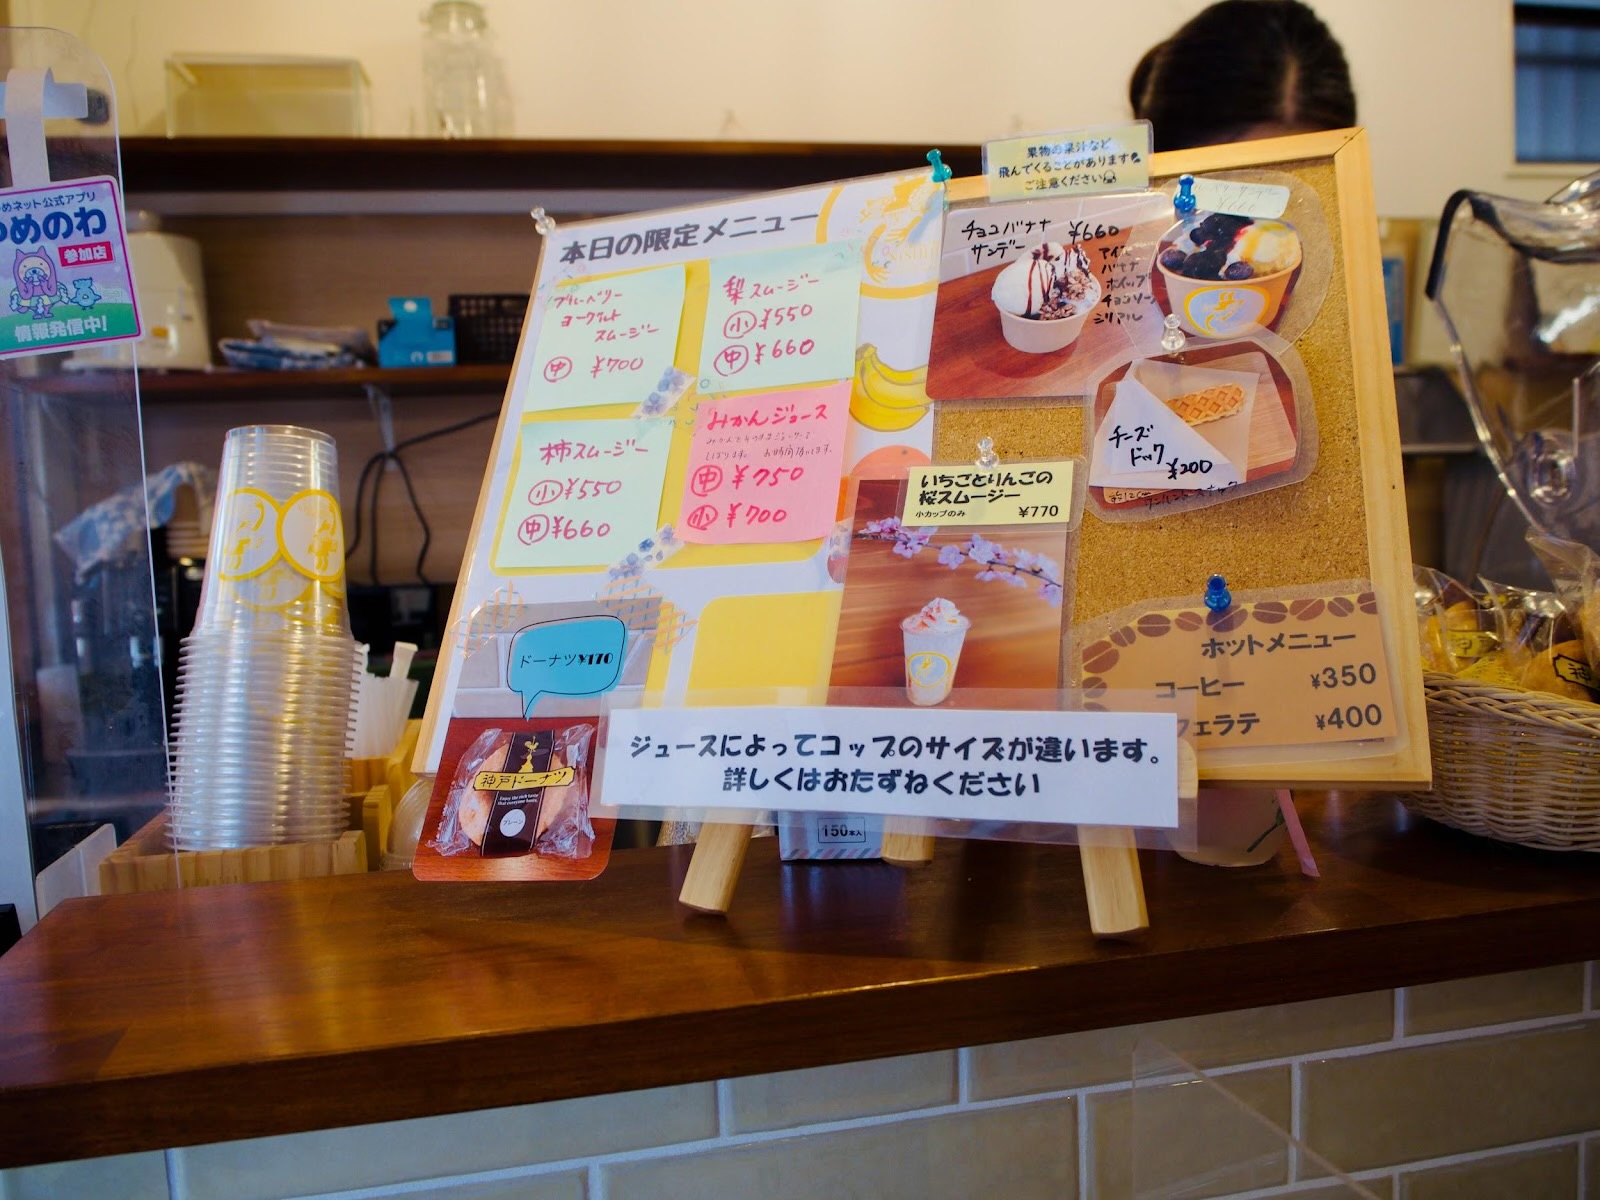 公式アプリ
参加店
情報発信中!
本日の限定メニュー
ブルーベリー
ヨーグルト
スムージー
中 ¥700
梨スムージー
小 ¥550
中 ¥660
柿スムージー
小 ¥550
中 ¥660
みかんジュース
中 ¥750
小 ¥700
ドーナツ¥170
神戸ドーナツ
プレーン
果物の果汁など
飛んでくることがあります
ご注意ください
チョコバナナ
サンデー ¥660
アイス
バナナ
ホイップ
チョコソース
シリアル
チーズ
ドック
¥200
いちごとりんごの
桜スムージー
小カップのみ ¥770
ホットメニュー
コーヒー ¥350
フェラテ ¥400
ジュースによってコップのサイズが違います。
詳しくはおたずねください
150本入